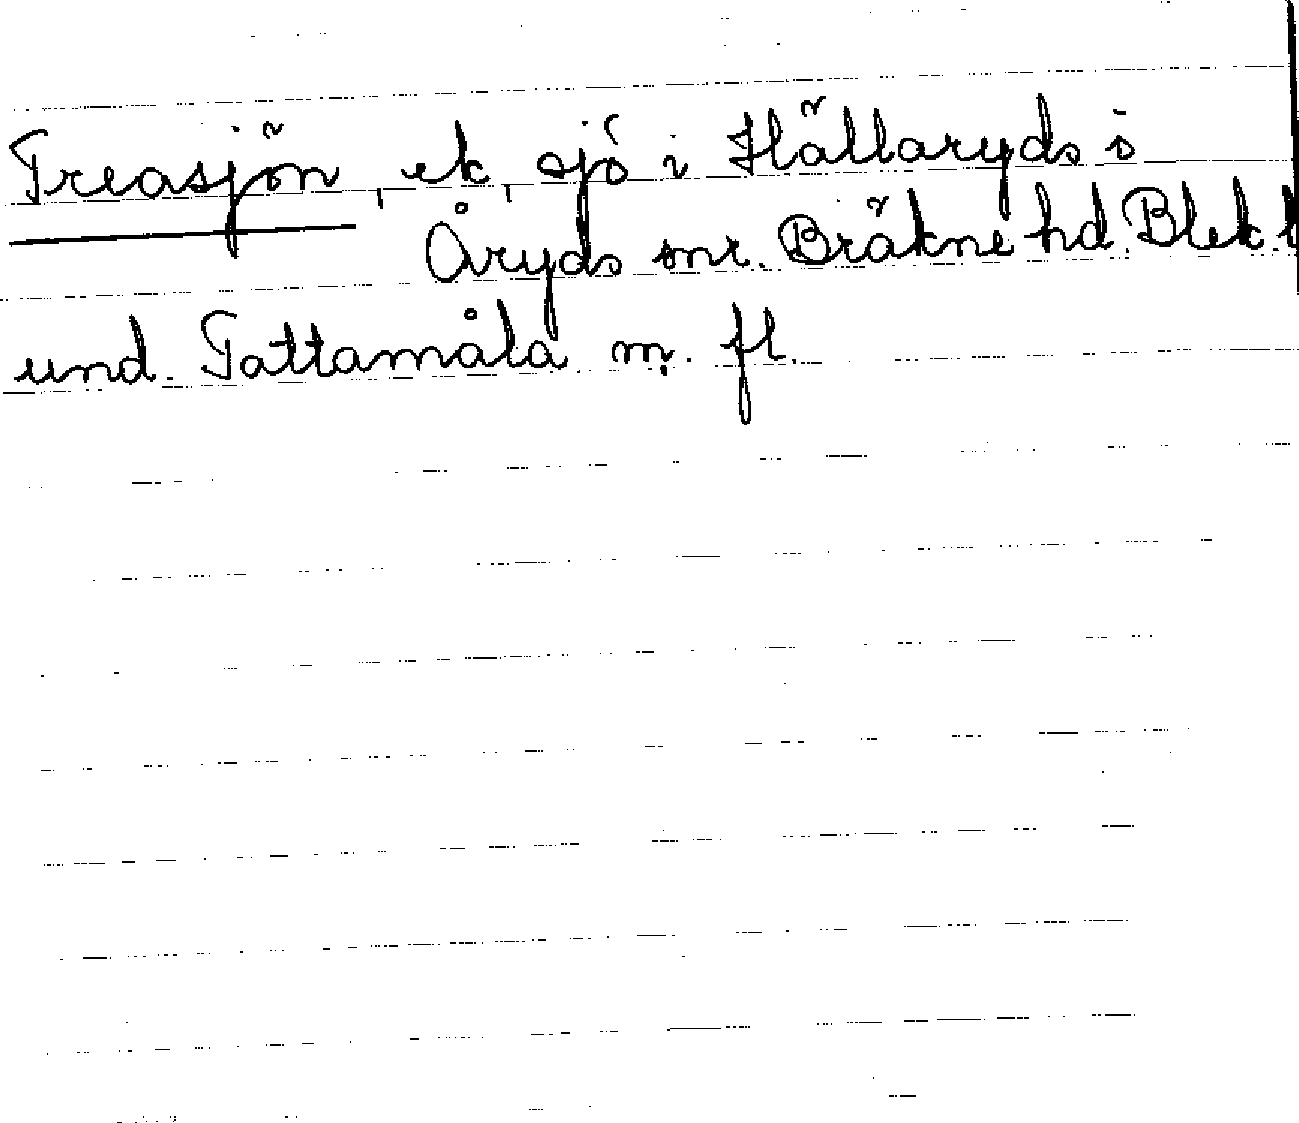 Treasjön, ek, sjö i Hällaryds s
Åryds mr. Bräkne hd. Blek. l
und. Tattamåla m. fl.